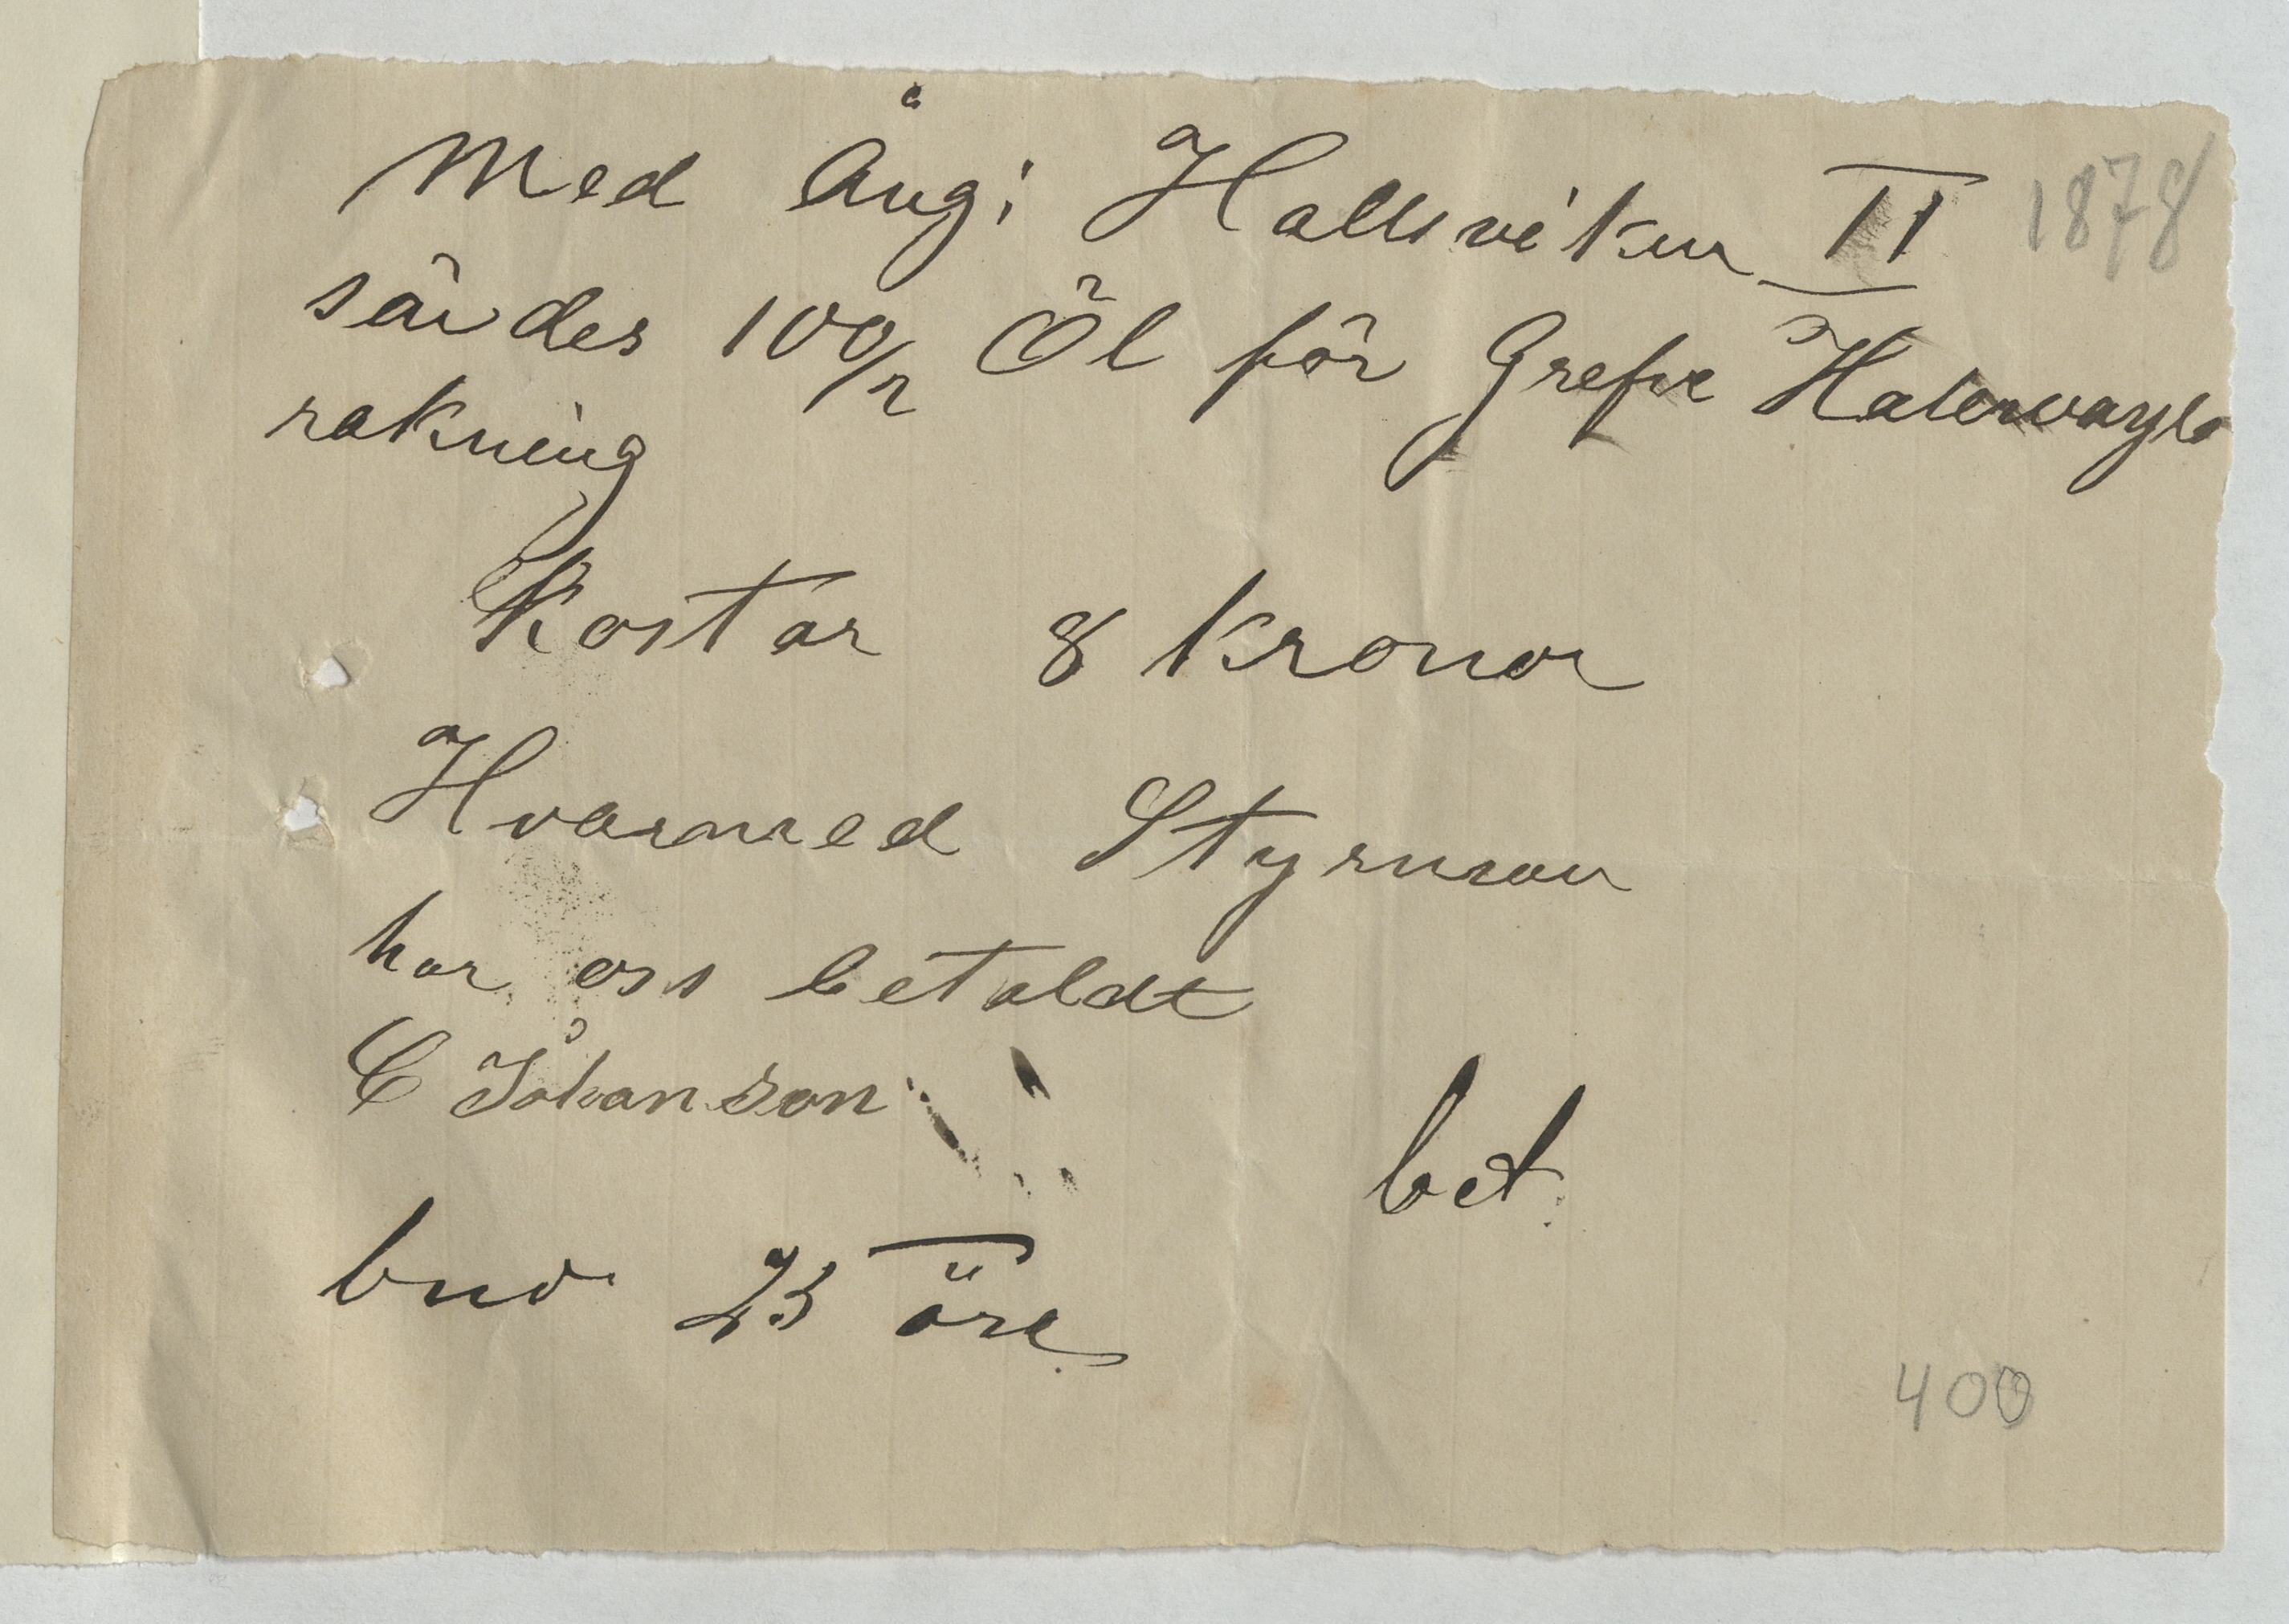 Med Ång: Hallsviken II 1878
sändes 100/2 Öl för Grefve
räkning
Kostar 8 kronor
Hvarmed Styrman
har oss betaldt
C Johanson
bet.
bud 25 öre
400